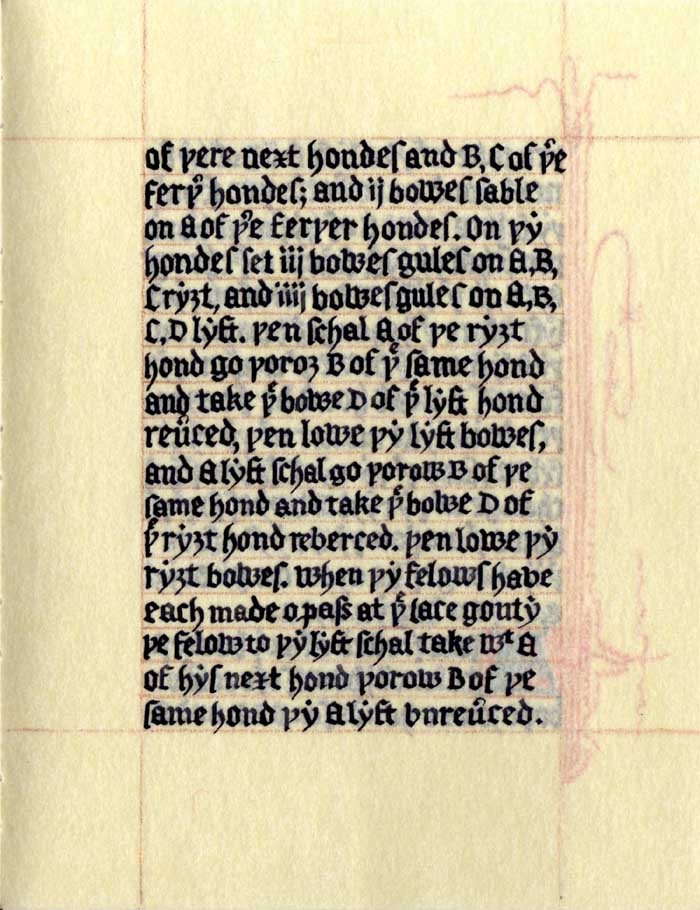 of þere next hondeſ and B, C of þͤe
ferþͬ hondeſ; and ij boweſ ſable
on A of þͤe ferþer hondeſ. On þẏ
hondeſ ſet iiij boweſ guleſ on A, B,
C rẏȝt, and iiij boweſ guleſ on A, B,
C, D lẏft. þen ſchal A of þe rẏȝt
hond go þoroȝ B of þͤ ſame hond
and take þͤ bowe D of þͤ lẏft hond
reu̔ced, þen lowe þẏ lẏft boweſ,
and A lẏft ſchal go þorow B of þe
ſame hond and take þͤ bowe D of
þͤ rẏȝt hond reberced. þen lowe þẏ
rẏȝt boweſ. When þẏ felowſ habe
each made o paß at þͤ lace goutẏ
þe felow to þẏ lẏft ſchal take wᵗ A
of hẏſ next hond þorow B of þe
ſame hond þẏ A lẏft vnreu̔ced.